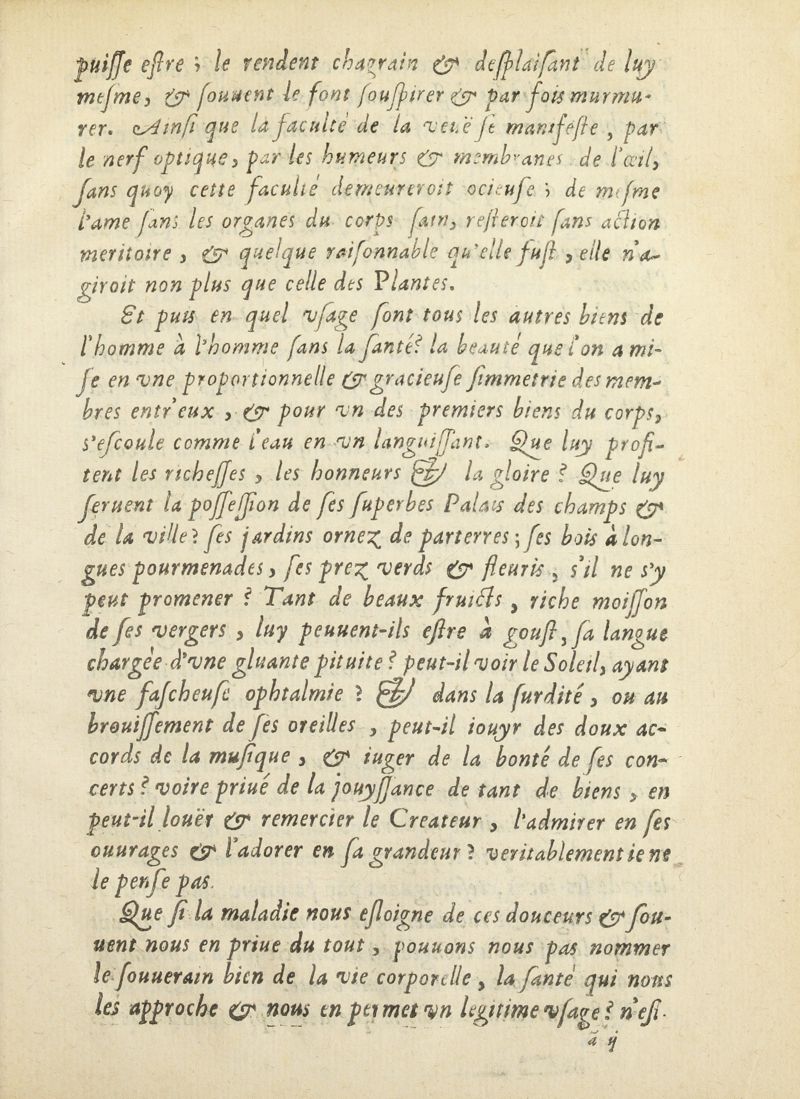 puiſſe eſtre ; le rendent chagrain & deſplaiſant de luy
meſme, & ſouuent le font ſouſpirer & par fois murmu-
rer. Ainſi que la faculté de la veuë ſe manifeſte , par
le nerf optique, par les humeurs & membranes de l'œil,
ſans quoy cette faculté demeureroit ocieuſe ; de meſme
l'ame ſans les organes du corps ſain, reſteroit ſans action
meritoire , & quelque raiſonnable qu'elle fuſt , elle n'a-
giroit non plus que celle des Plantes.
Et puis en quel vſage ſont tous les autres biens de
l'homme à l'homme ſans la ſanté? la beauté que l'on a mi-
ſe en vne proportionnelle & gracieuſe ſimmetrie des mem-
bres entr'eux , & pour vn des premiers biens du corps,
s'eſcoule comme l'eau en vn languiſſant. Que luy profi-
tent les richeſſes , les honneurs & la gloire ? Que luy
ſeruent la poſſeſſion de ſes ſuperbes Palais des champs &
de la ville? ſes jardins ornez de parterres ; ſes bois à lon-
gues pourmenades, ſes prez verds & fleuris , s'il ne s'y
peut promener ? Tant de beaux fruicts , riche moiſſon
de ſes vergers , luy peuuent-ils eſtre à gouſt, ſa langue
chargée d'vne gluante pituite ? peut-il voir le Soleil, ayant
vne faſcheuſe ophtalmie ? & dans la ſurdité , ou au
brouiſſement de ſes oreilles , peut-il iouyr des doux ac-
cords de la muſique , & iuger de la bonté de ſes con-
certs ? voire priué de la jouyſſance de tant de biens , en
peut-il louër & remercier le Createur , l'admirer en ſes
ouurages & l'adorer en ſa grandeur ? veritablement ie ne
le penſe pas.
Que ſi la maladie nous eſloigne de ces douceurs & ſou-
uent nous en priue du tout , pouuons nous pas nommer
le ſouuerain bien de la vie corporelle , la ſanté qui nous
les approche & nous en permet vn legitime vſage ? n'eſt-
ã ij